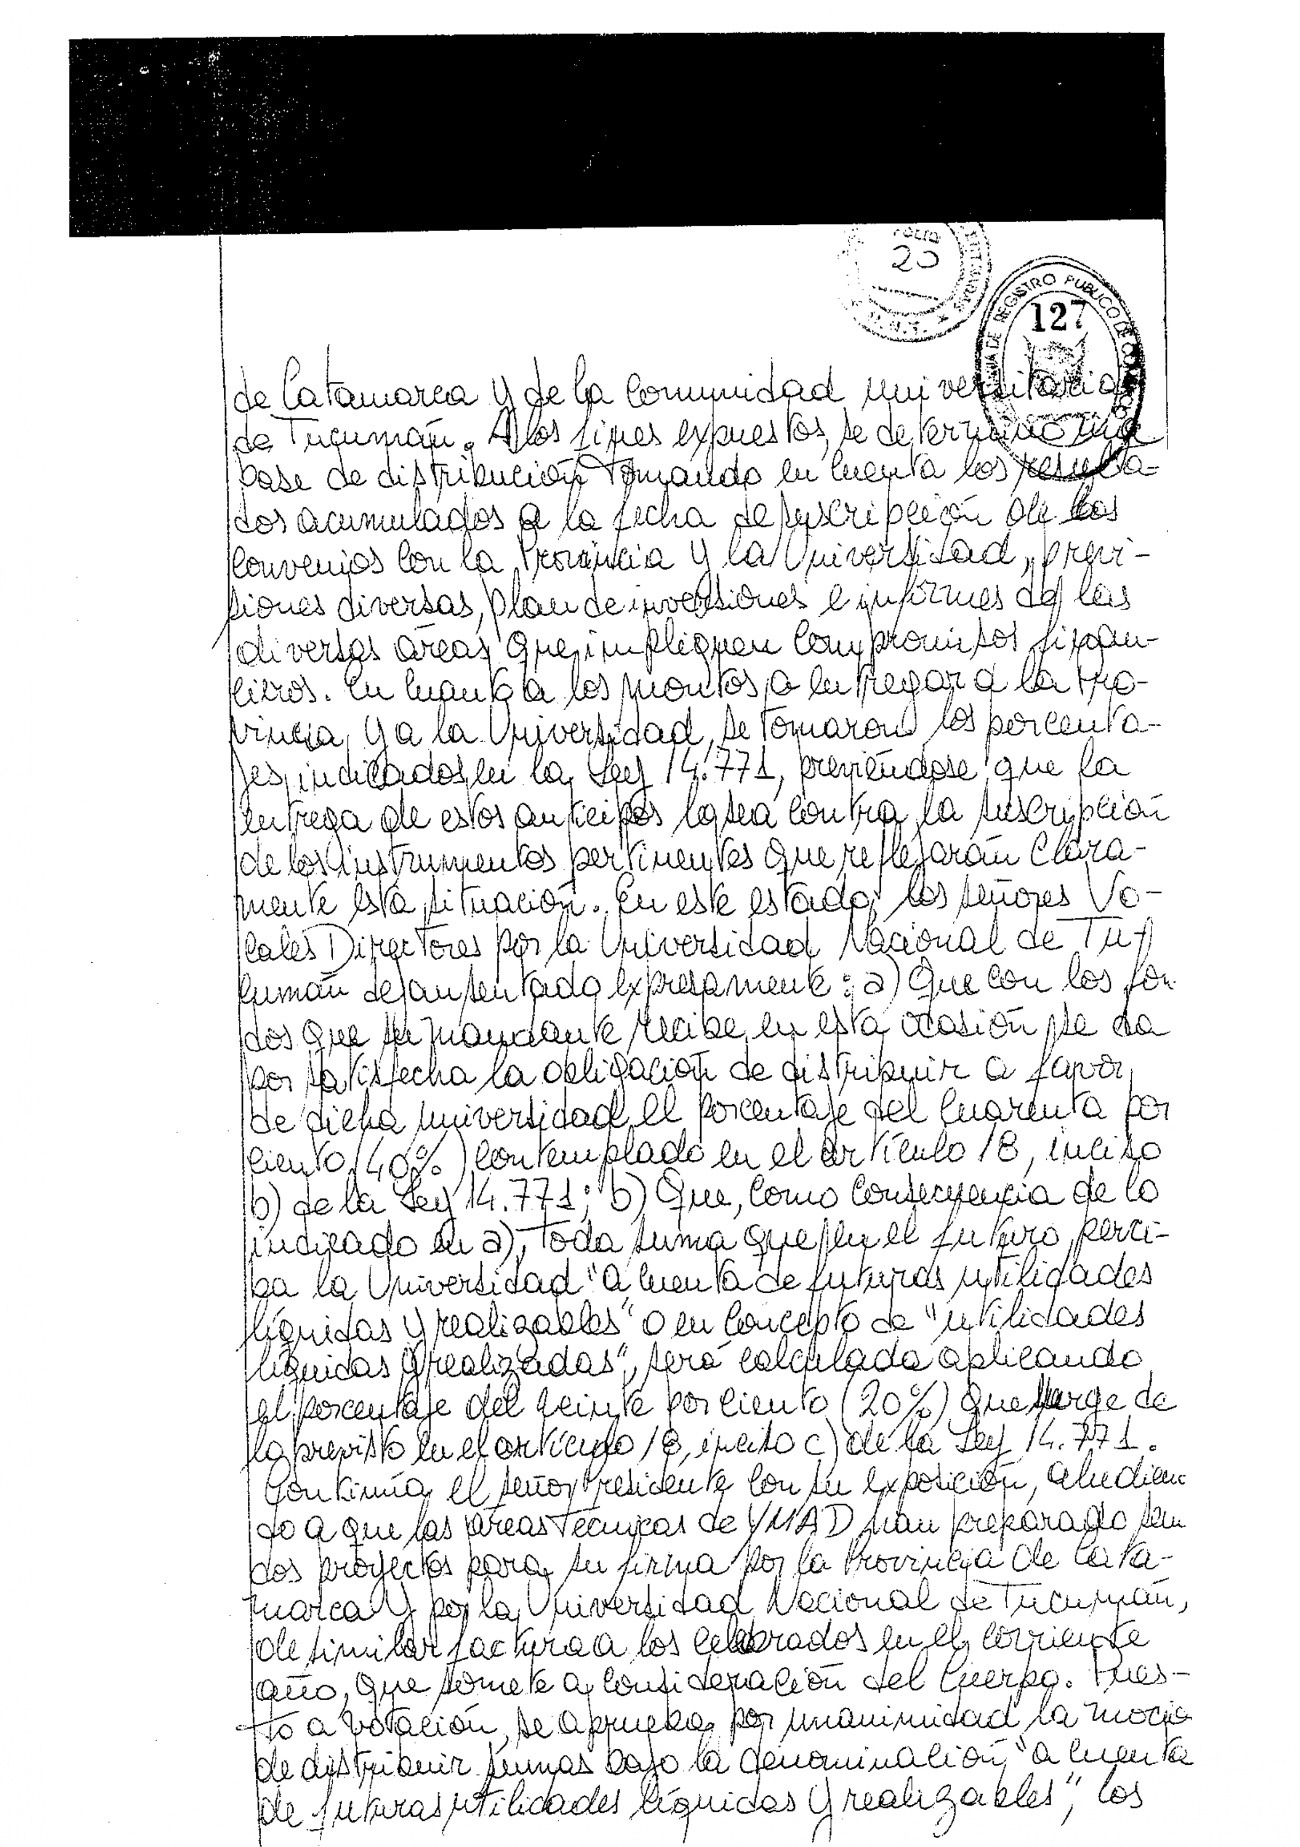 FOLIO
20
REGISTRO PUBLICO DE
127
de Catamarca y de la comunidad universitaria
de Tucumán. A los fines expuestos, se determinó una
base de distribución tomando en cuenta los resulta-
dos acumulados a la fecha de suscripción de los
convenios con la Provincia y la Universidad, previ-
siones diversas, plan de inversiones e informes de las
diversas áreas que impliquen compromisos finan-
cieros. En cuanto a los montos a entregar a la Pro-
vincia y a la Universidad, se tomaron los porcenta-
jes indicados en la Ley 14.771, previéndose que la
entrega de estos anticipos lo sea contra la suscripción
de los instrumentos pertinentes que reflejarán clara-
mente esta situación. En este estado, los señores Vo-
cales Directores por la Universidad Nacional de Tu-
cumán dejan sentado expresamente: a) Que con los fon-
dos que su mandante recibe en esta ocasión se da
por satisfecha la obligación de distribuir a favor
de dicha universidad el porcentaje del cuarenta por
ciento (40%) contemplado en el artículo 18, inciso
b) de la Ley 14.771; b) Que, como consecuencia de lo
indicado en a), toda suma que en el futuro perci-
ba la Universidad "a cuenta de futuras utilidades
líquidas y realizables" o en concepto de "utilidades
líquidas y realizadas", será calculada aplicando
el porcentaje del veinte por ciento (20%) que surge de
lo previsto en el artículo 18, inciso c) de la Ley 14.771.
Continúa el señor Presidente con su exposición, aludien
do a que las áreas técnicas de YMAD han preparado sen
dos proyectos para su firma por la Provincia de Cata-
marca y por la Universidad Nacional de Tucumán,
de similar factura a los celebrados en el corriente
año, que somete a consideración del Cuerpo. Pues-
to a votación, se aprueba por unanimidad la moció
de distribuir sumas bajo la denominación "a cuenta
de futuras utilidades líquidas y realizables", los